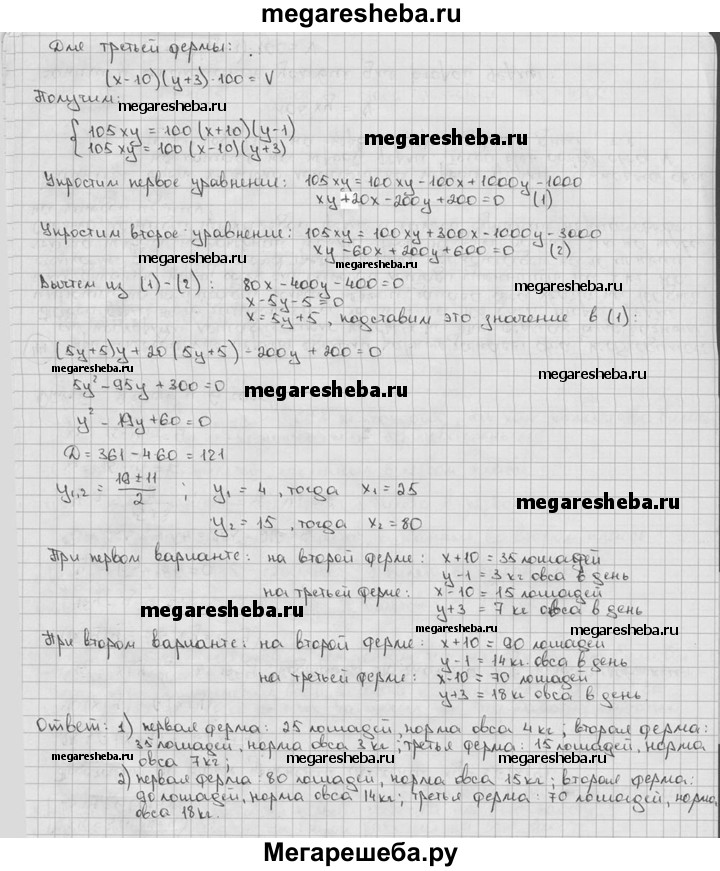 megaresheba.ru
Для третьей фермы:
(x-10)(y+3)·100 = V
Получим:
megaresheba.ru
{ 105xy = 100(x+10)(y-1)
105xy = 100(x-10)(y+3)
megaresheba.ru
Упростим первое уравнении: 105xy = 100xy - 100x + 1000y - 1000
xy + 20x - 200y + 200 = 0 (1)
Упростим второе уравнение: 105xy = 100xy + 300x - 1000y - 3000
xy - 60x + 200y + 600 = 0 (2)
megaresheba.ru
megaresheba.ru
Вычтем из (1)-(2): 80x - 400y - 400 = 0
x - 5y - 5 = 0
megaresheba.ru
x = 5y + 5, подставим это значение в (1):
(5y+5)y + 20(5y+5) - 200y + 200 = 0
megaresheba.ru
5y² - 95y + 300 = 0
megaresheba.ru
y² - 19y + 60 = 0
D = 361 - 4·60 = 121
y₁,₂ = (19 ± 11)/2 ; y₁ = 4, тогда x₁ = 25
megaresheba.ru
y₂ = 15, тогда x₂ = 80
При первом варианте: на второй ферме: x+10 = 35 лошадей
y-1 = 3 кг овса в день
на третьей ферме: x-10 = 15 лошадей
megaresheba.ru
y+3 = 7 кг овса в день
megaresheba.ru
megaresheba.ru
При втором варианте: на второй ферме: x+10 = 90 лошадей
y-1 = 14 кг. овса в день
на третьей ферме: x-10 = 70 лошадей
megaresheba.ru
y+3 = 18 кг овса в день.
Ответ: 1) первая ферма: 25 лошадей, норма овса 4 кг; вторая ферма:
35 лошадей, норма овса 3 кг; третья ферма: 15 лошадей, норма
овса 7 кг;
megaresheba.ru
megaresheba.ru
2) первая ферма: 80 лошадей, норма овса 15 кг; вторая ферма:
90 лошадей, норма овса 14 кг; третья ферма: 70 лошадей, норма
овса 18 кг.
megaresheba.ru
Мегарешеба.ру